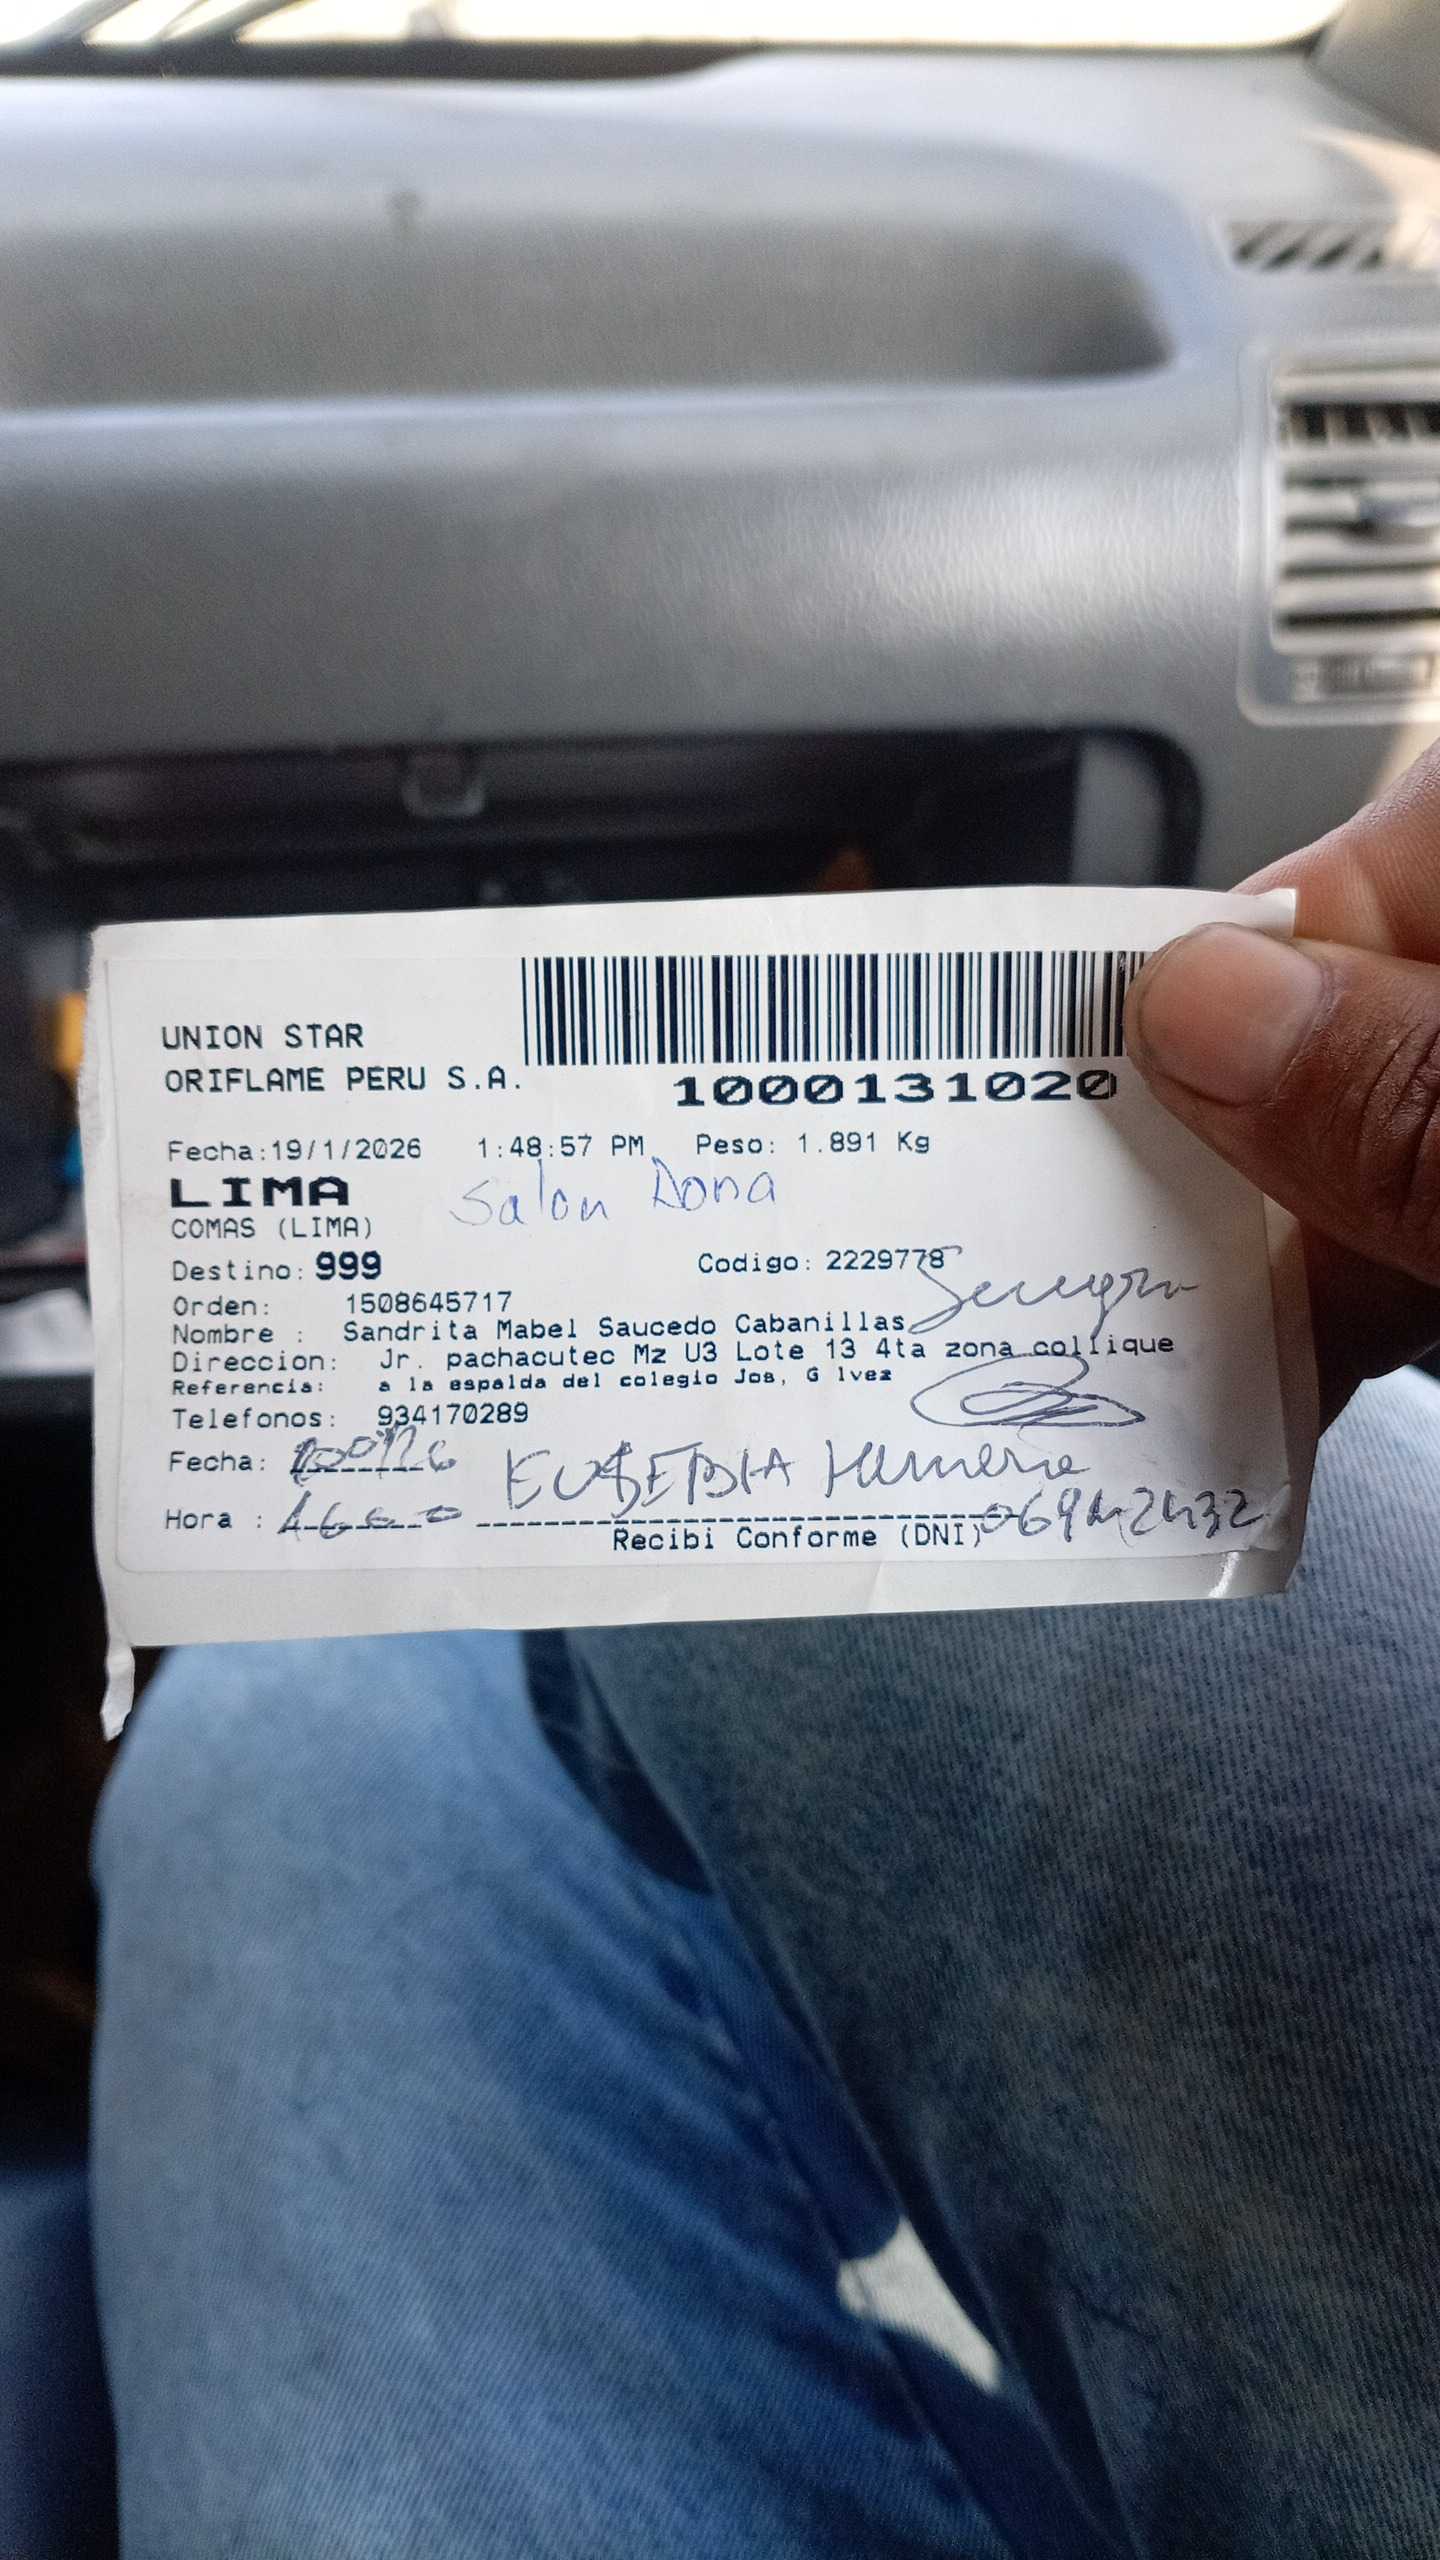 UNION STAR
ORIFLAME PERU S.A.
1000131020
Fecha:19/1/2026 1:48:57 PM Peso: 1.891 Kg
LIMA
Salon Dona
COMAS (LIMA)
Destino: 999 Codigo: 2229778
Orden: 1508645717
Nombre : Sandrita Mabel Saucedo Cabanillas
Direccion: Jr. pachacutec Mz U3 Lote 13 4ta zona collique
Referencia: a la espalda del colegio Jos, G lvez
Telefonos: 934170289
Fecha:
EUSEBIA
Hora :
Recibi Conforme (DNI)